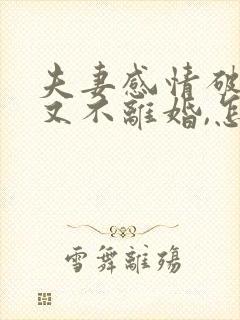 夫妻感情破
又不離婚,怎
雪舞離殤